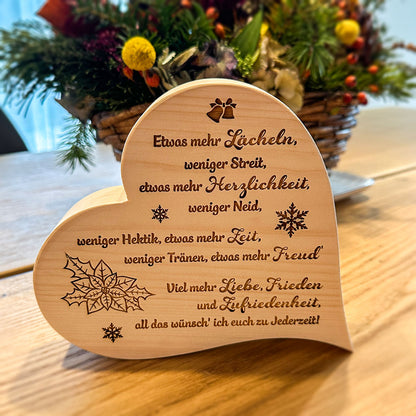 Etwas mehr Lächeln,
weniger Streit,
etwas mehr Herzlichkeit,
weniger Neid,
weniger Hektik, etwas mehr Zeit,
weniger Tränen, etwas mehr Freud'
Viel mehr Liebe, Frieden
und Zufriedenheit,
all das wünsch' ich euch zu Jederzeit!